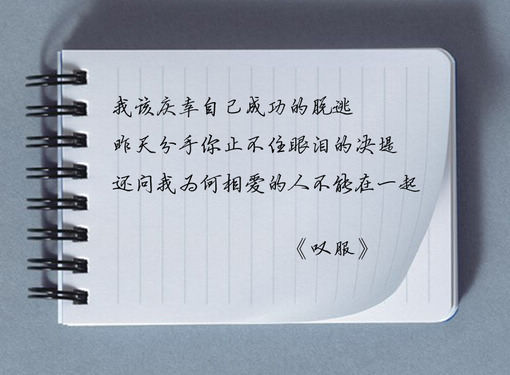 我该庆幸自己成功的脱逃
昨天分手你止不住眼泪的决堤
还问我为何相爱的人不能在一起
《叹服》